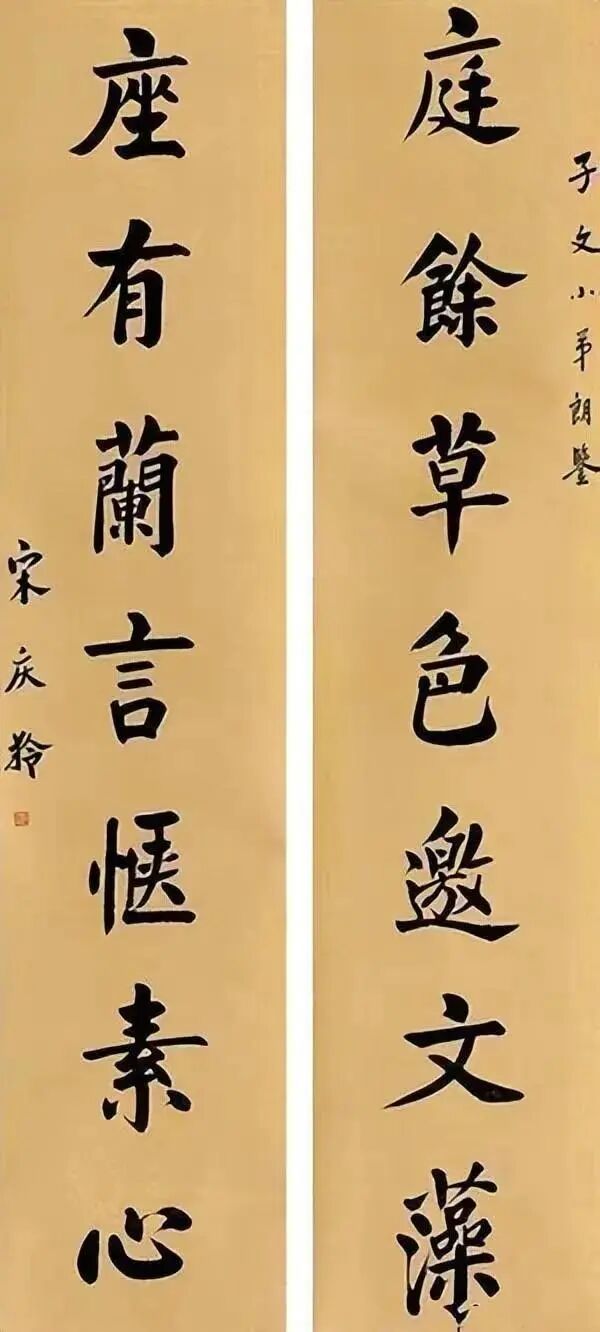 子文小弟朗鑒
庭餘草色邀文藻
座有蘭言惬素心
宋庆龄